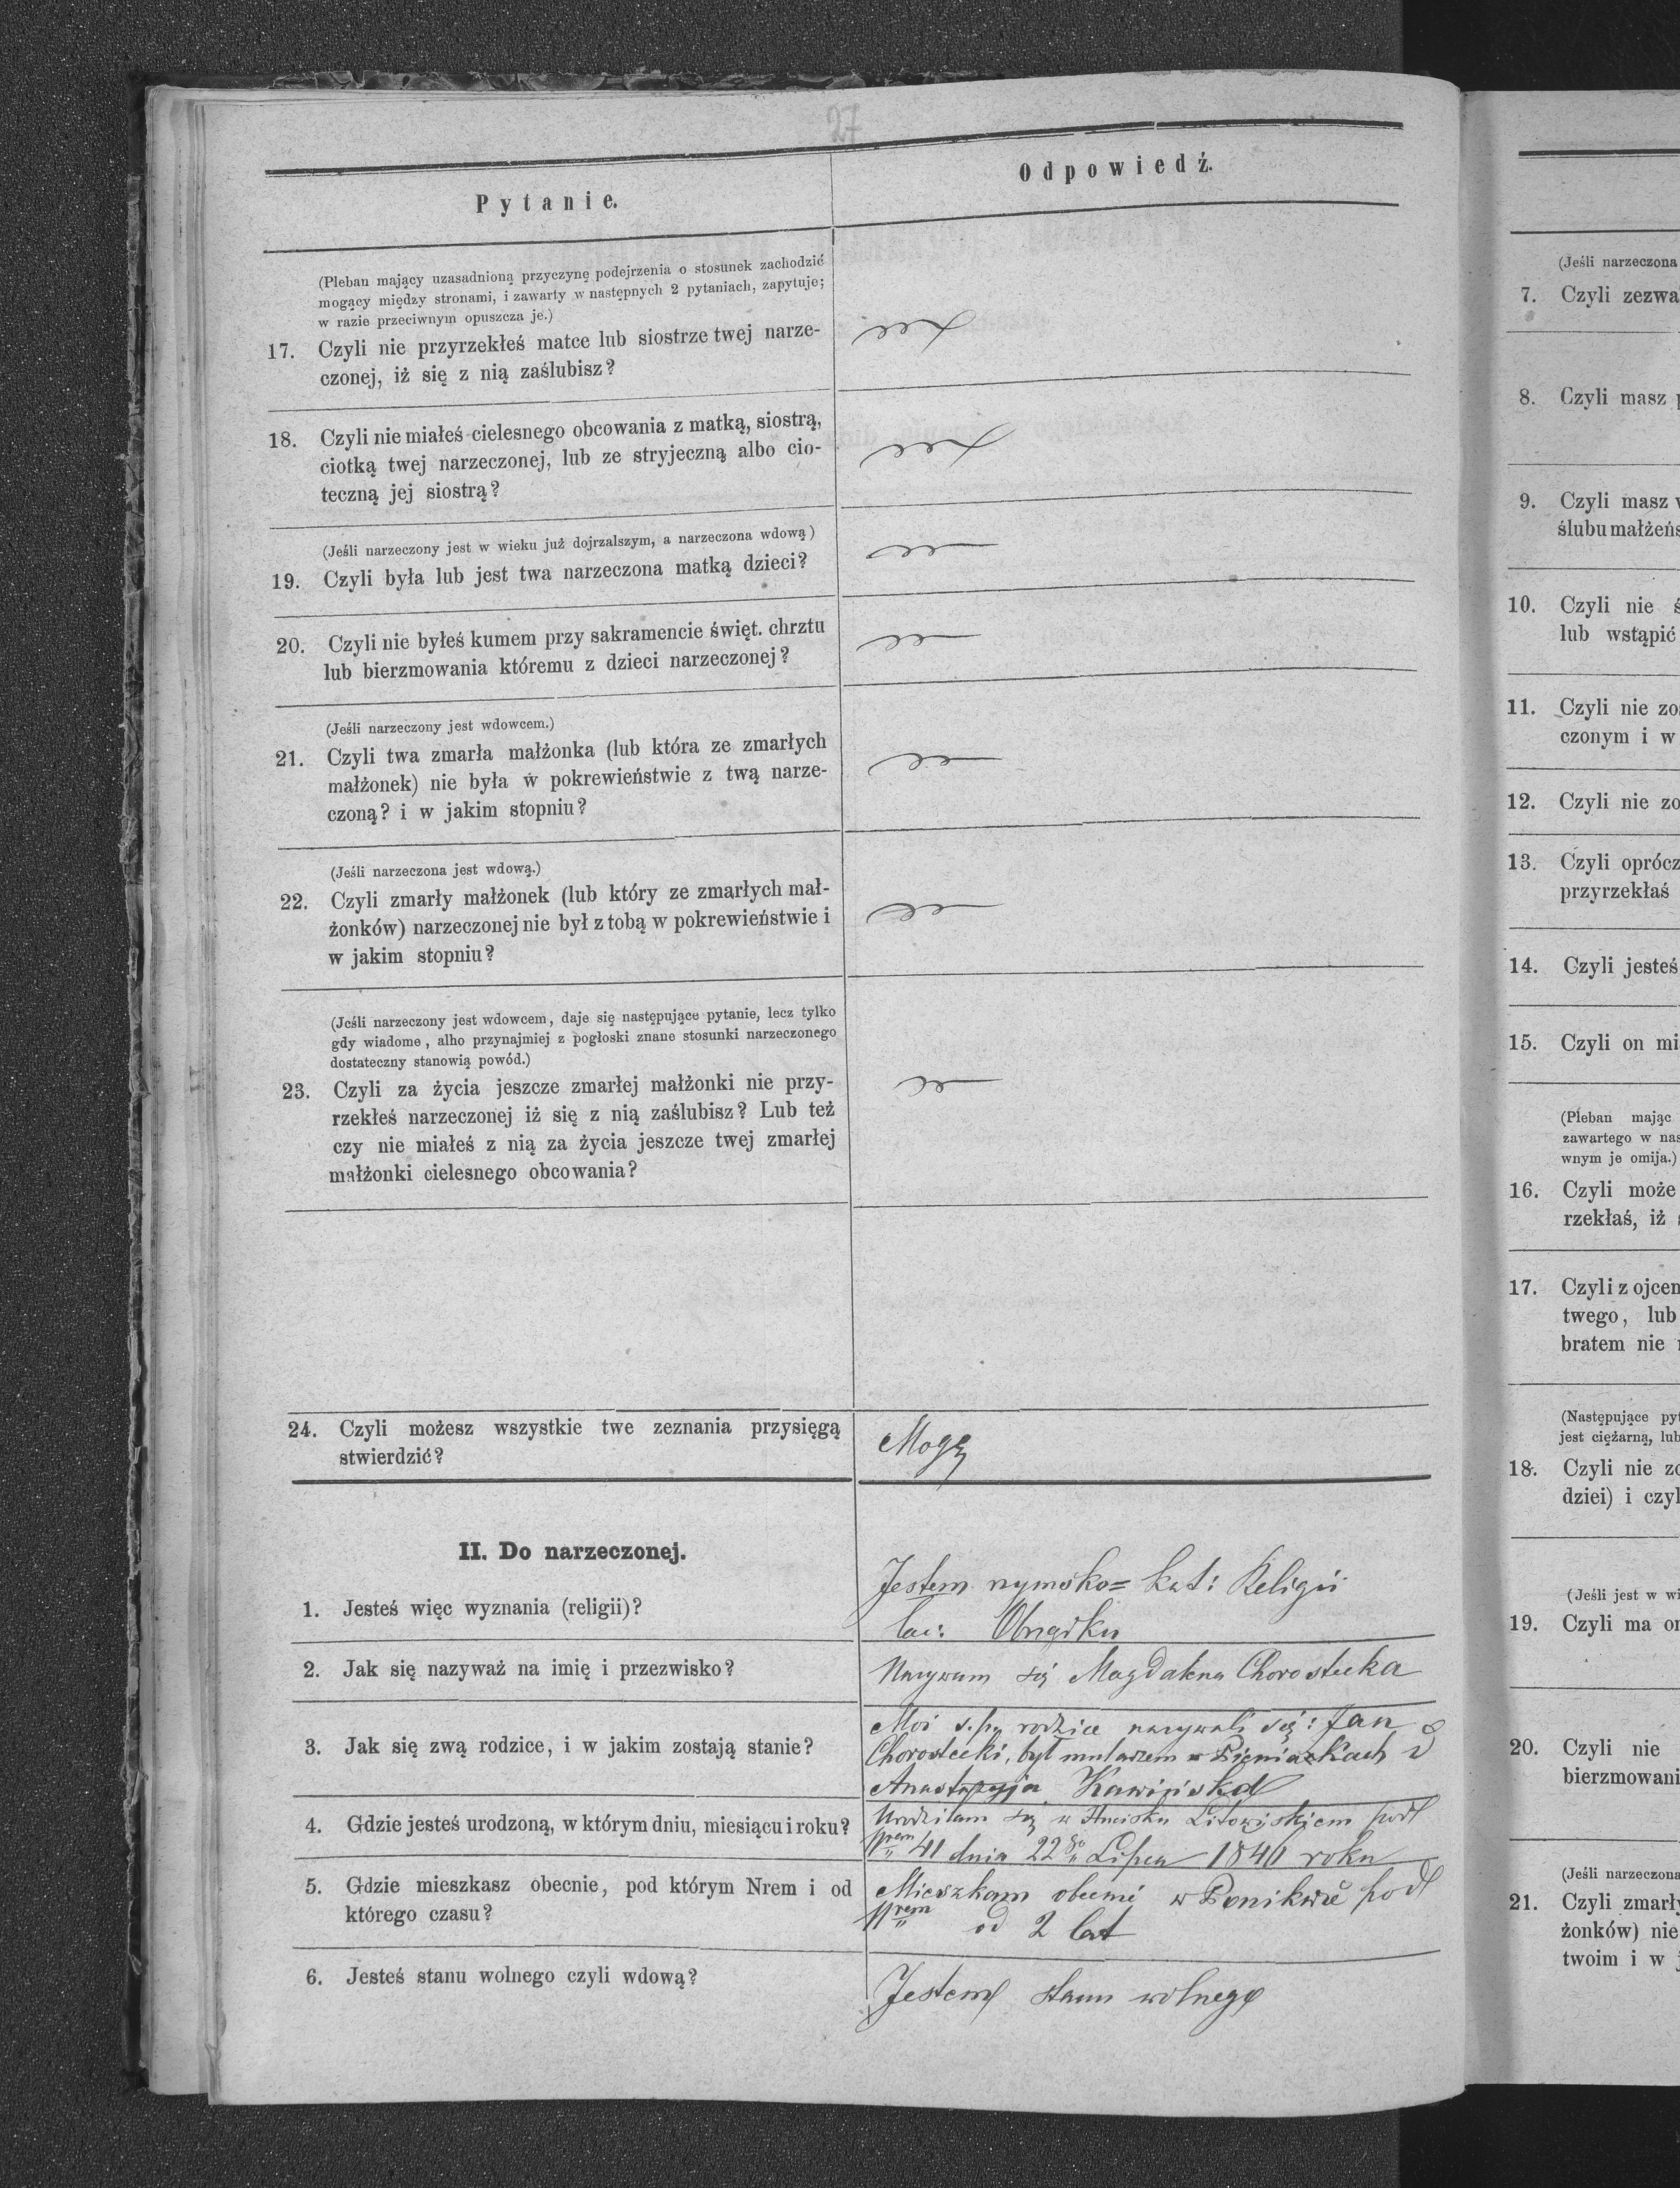 27
Pytanie.
Odpowiedź.
(Pleban mający uzasadnioną przyczynę podejrzenia o stosunek zachodzić
mogący między stronami, i zawarty w następnych 2 pytaniach, zapytuje;
w razie przeciwnym opuszcza je.)
17. Czyli nie przyrzekłeś matce lub siostrze twej narze-
czonej, iż się z nią zaślubisz?
18. Czyli nie miałeś cielesnego obcowania z matką, siostrą,
ciotką twej narzeczonej, lub ze stryjeczną albo cio-
teczną jej siostrą?
(Jeśli narzeczony jest w wieku już dojrzalszym, a narzeczona wdową)
19. Czyli była lub jest twa narzeczona matką dzieci?
20. Czyli nie byłeś kumem przy sakramencie święt. chrztu
lub bierzmowania któremu z dzieci narzeczonej?
(Jeśli narzeczony jest wdowcem.)
21. Czyli twa zmarła małżonka (lub która ze zmarłych
małżonek) nie była w pokrewieństwie z twą narze-
czoną? i w jakim stopniu?
(Jeśli narzeczona jest wdową.)
22. Czyli zmarły małżonek (lub który ze zmarłych mał-
żonków) narzeczonej nie był z tobą w pokrewieństwie i
w jakim stopniu?
(Jeśli narzeczony jest wdowcem, daje się następujące pytanie, lecz tylko
gdy wiadome, alho przynajmiej z pogłoski znane stosunki narzeczonego
dostateczny stanowią powód.)
23. Czyli za życia jeszcze zmarłej małżonki nie przy-
rzekłeś narzeczonej iż się z nią zaślubisz? Lub też
czy nie miałeś z nią za życia jeszcze twej zmarłej
małżonki cielesnego obcowania?
24. Czyli możesz wszystkie twe zeznania przysięgą
stwierdzić?
Mogę
II. Do narzeczonej.
1. Jesteś więc wyznania (religii)?
Jestem rymsko= kat: Religii
łac: Obrządku
2. Jak się nazyważ na imię i przezwisko?
Nazywam się Magdalena Chorostecka
3. Jak się zwą rodzice, i w jakim zostają stanie?
Moi ś.p. rodzice nazywali się: Jan
Chorostecki, był mularzem w Pieniakach
Anastazyja Kawińska
4. Gdzie jesteś urodzoną, w którym dniu, miesiącu i roku?
Urodziłam się w Litowiskiem pod
Nrem 41 dnia 22go Lipca 1841 roku
5. Gdzie mieszkasz obecnie, pod którym Nrem i od
którego czasu?
Mieszkam obecnie w Ponikwie pod
Nrem od 2 lat
6. Jesteś stanu wolnego czyli wdową?
Jestem stanu wolnego
(Jeśli narzeczona
7. Czyli zezwa
8. Czyli masz
9. Czyli masz
ślubu małżeńs
10. Czyli nie
lub wstąpić
11. Czyli nie zo
czonym i w
12. Czyli nie zo
13. Czyli oprócz
przyrzekłaś
14. Czyli jesteś
15. Czyli on mi
(Pleban mając
zawartego w nas
wnym je omija.)
16. Czyli może
rzekłaś, iż
17. Czyli z ojcem
twego, lub
bratem nie
(Następujące pyt
jest ciężarną, lub
18. Czyli nie zo
dziei) i czyl
(Jeśli jest w wi
19. Czyli ma on
20. Czyli nie
bierzmowani
(Jeśli narzeczona
21. Czyli zmarły
żonków) nie
twoim i w j